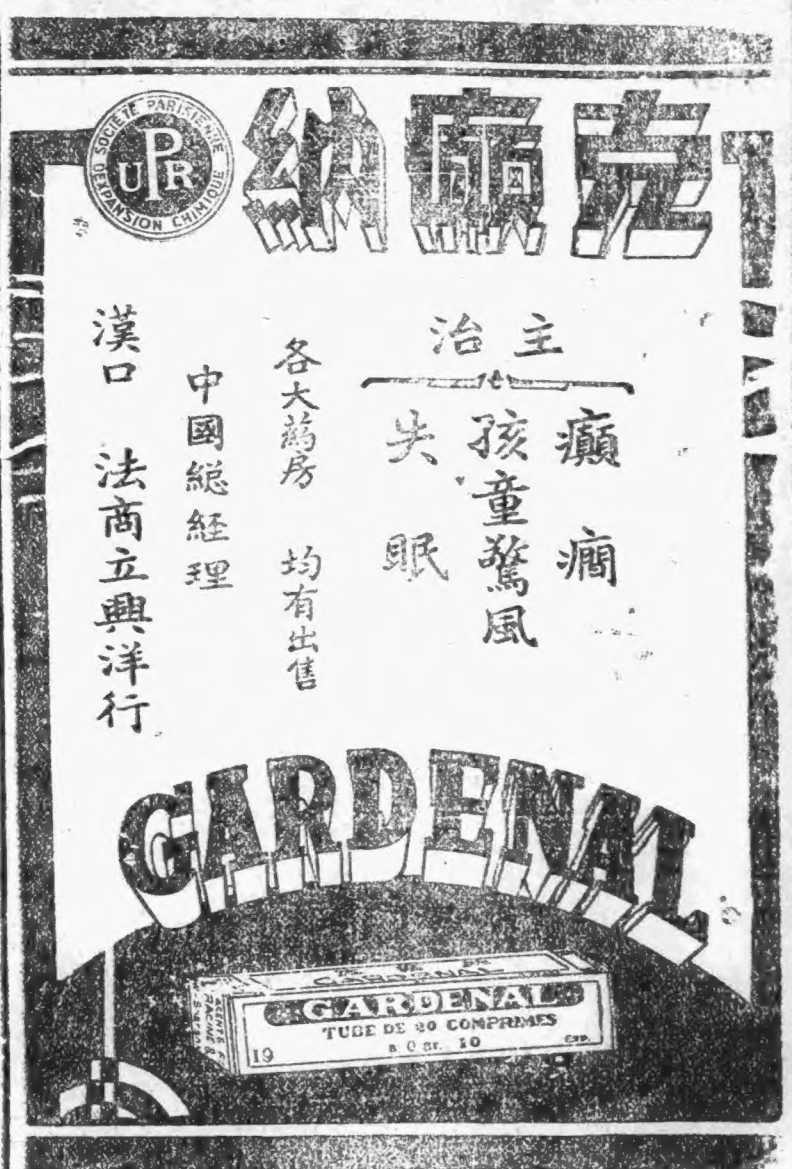 SOCIÉTÉ PARISIENNE
D'EXPANSION CHIMIQUE
UPR
克癲納
主治
癲癇
孩童驚風
失眠
各大薬房 均有出售
中國総経理
漢口 法商立興洋行
GARDENAL
GARDENAL
GARDENAL
TUBE DE 20 COMPRIMES
a 0 gr. 10
19
AGENTS
RACINE &